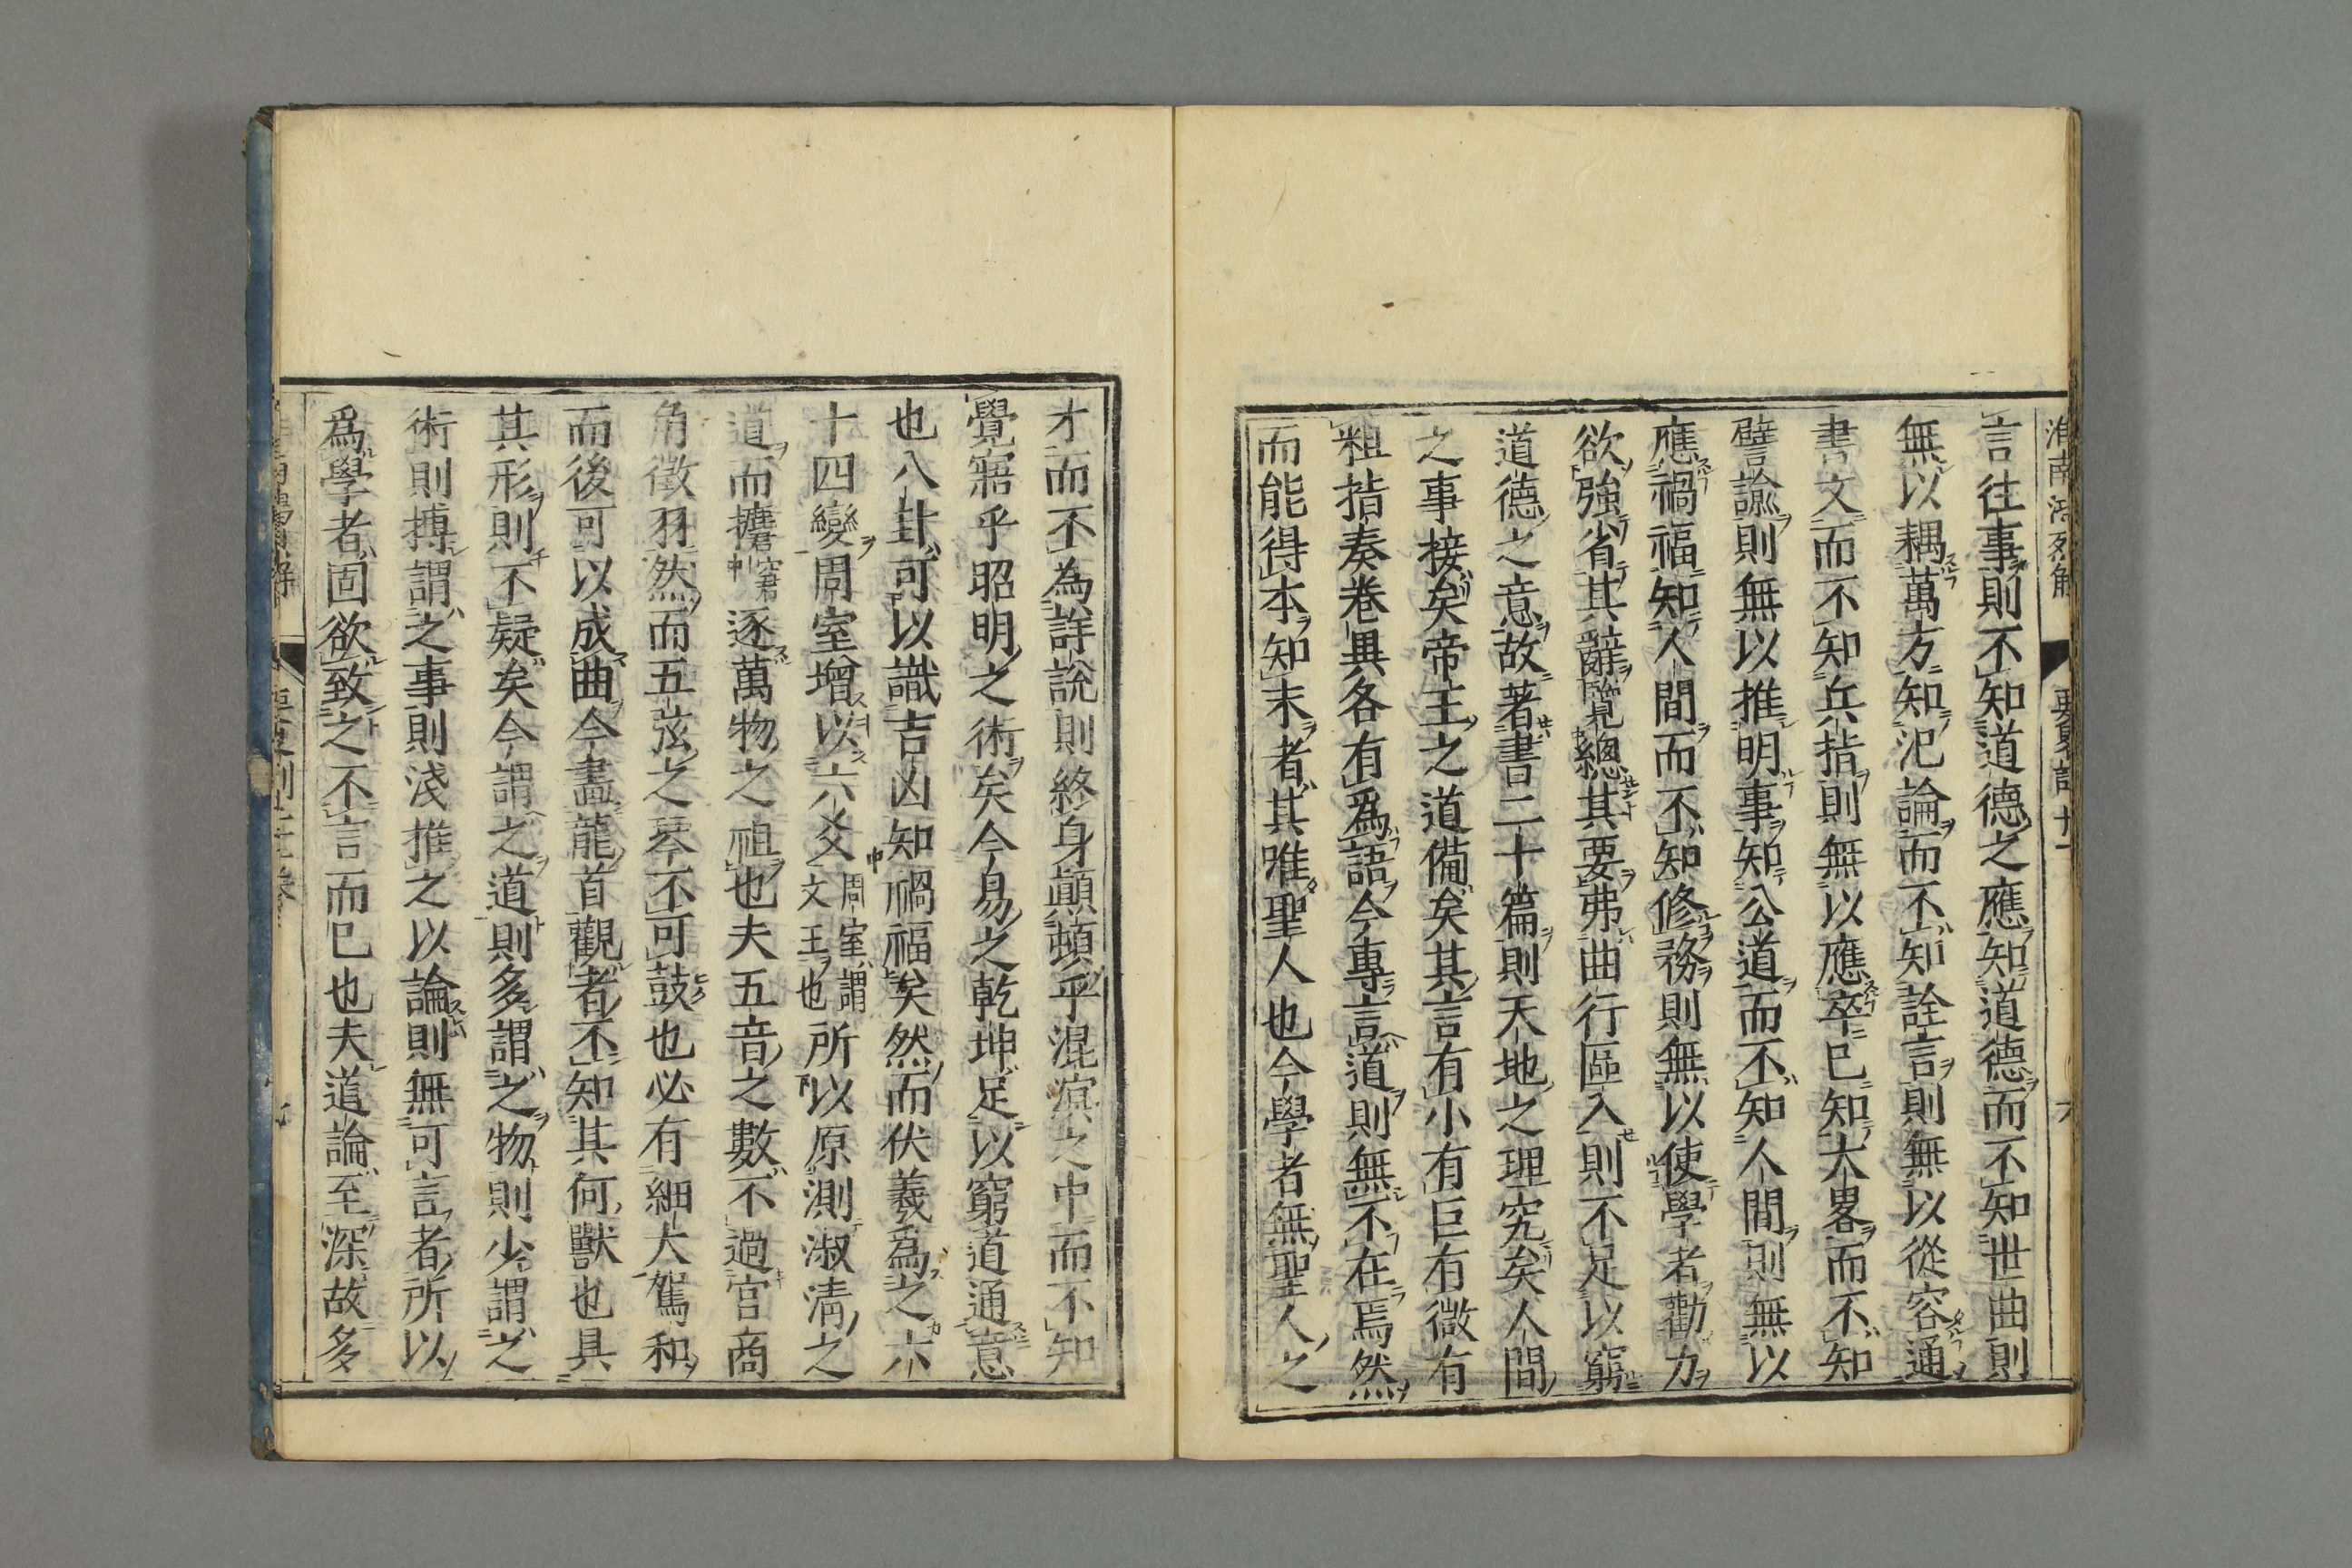 言往事則不知道德之應知道德而不知世曲則
無以耦萬方知氾論而不知詮言則無以從容通
書文而不知兵指則無以應卒已知大畧而不知
譬諭則無以推明事知公道而不知人間則無以
應禍福知人間而不知修務則無以使學者勸力
欲強省其辭覽總其要弗曲行區入則不足以窮
道德之意故著書二十篇則天地之理究矣人間
之事接矣帝王之道備矣其言有小有巨有微有
粗指奏卷異各有爲語今專言道則無不在焉然
而能得本知末者其唯聖人也今學者無聖人之
才而不為詳說則終身顚頓乎混溟之中而不知
覺寤乎昭明之術矣今易之乾坤足以窮道通意
也八卦可以識吉凶知禍福矣然而伏羲爲之六
十四變周室增以六爻周室謂文王也所以原測淑淸之
道而逐萬物之祖也夫五音之數不過宮商
角徵羽然而五弦之琴不可鼓也必有細大駕和
而後可以成曲今畫龍首觀者不知其何獸也具
其形則不疑矣今謂之道則多謂之物則少謂之
術則搏謂之事則淺推之以論則無可言者所以
爲學者固欲致之不言而已也夫道論至深故多